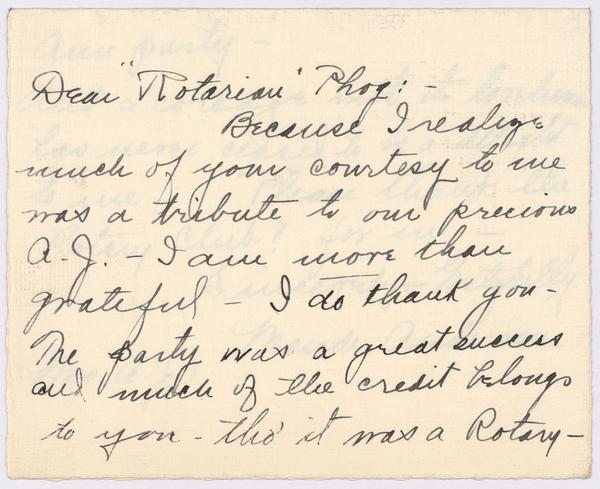 Dear "Rotarian" Phog: -
Because I realize
much of your courtesy to me
was a tribute to our precious
A. J. - I am more than
grateful - I do thank you -
The party was a great success
and much of the credit belongs
to you - tho' it was a Rotary -